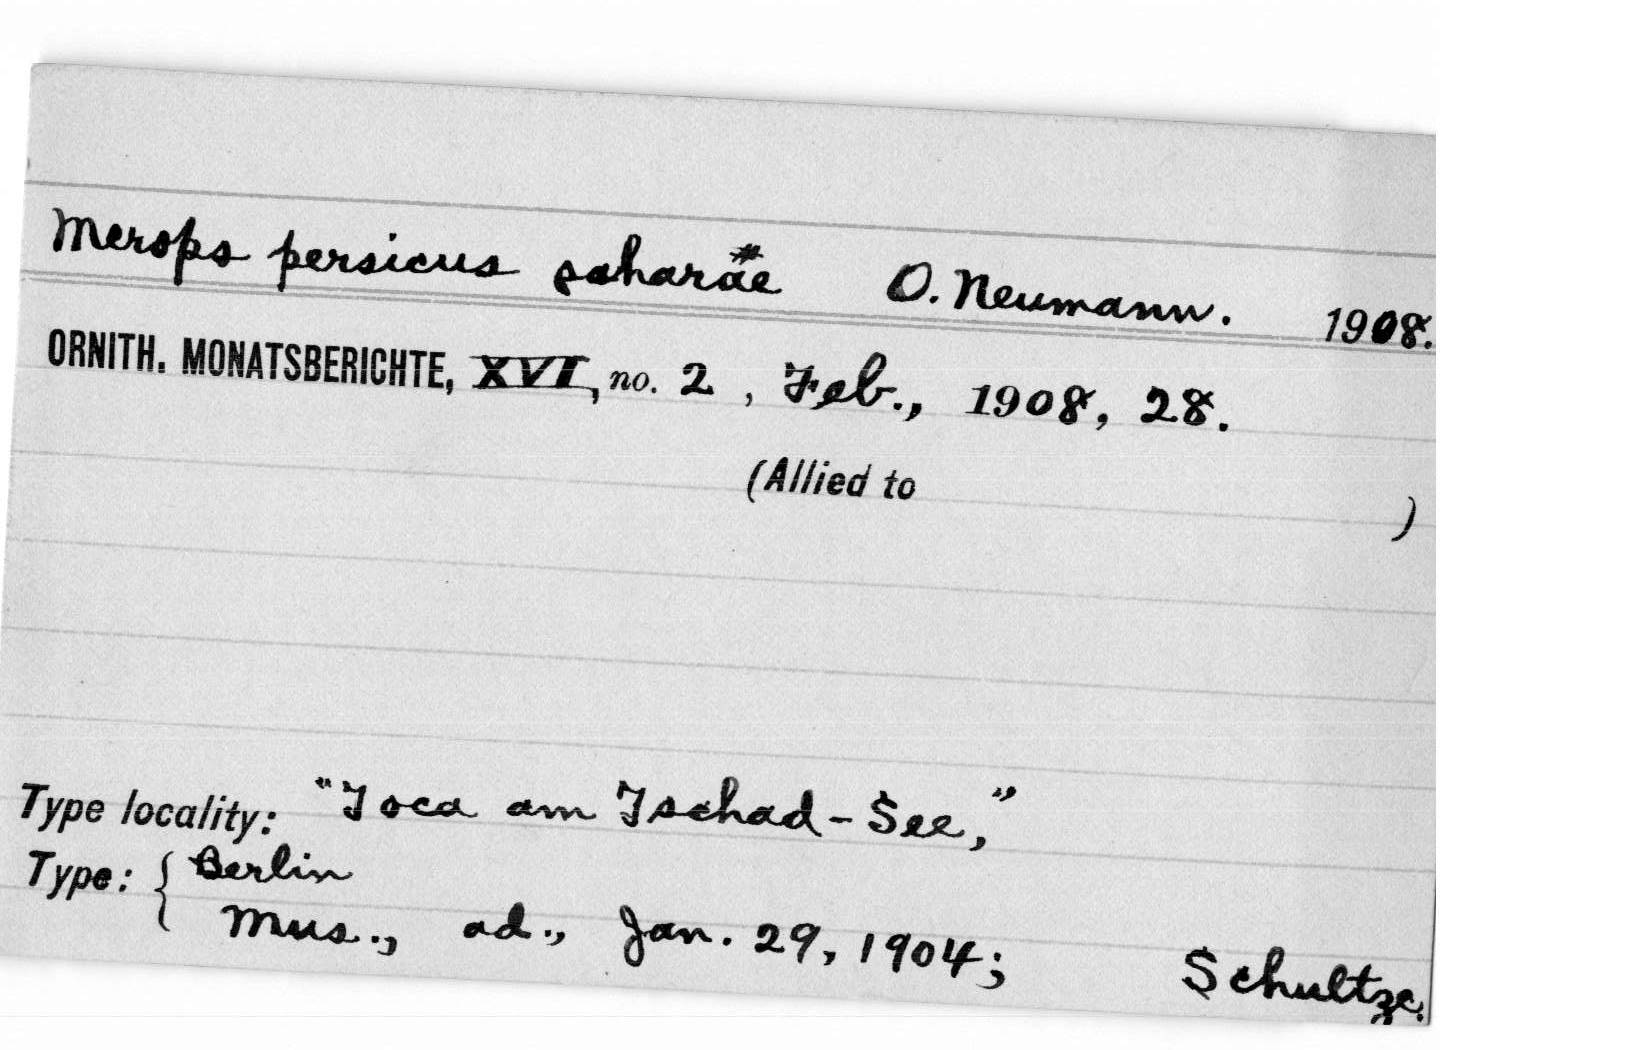 Merops persicus saharae O. Neumann. 1908.
ORNITH. MONATSBERICHTE, XVI, no. 2, Feb., 1908, 28.
(Allied to )
Type locality: "Joca am Tschad-See,"
Type: { Berlin
Mus., ad., Jan. 29, 1904; Schultze.